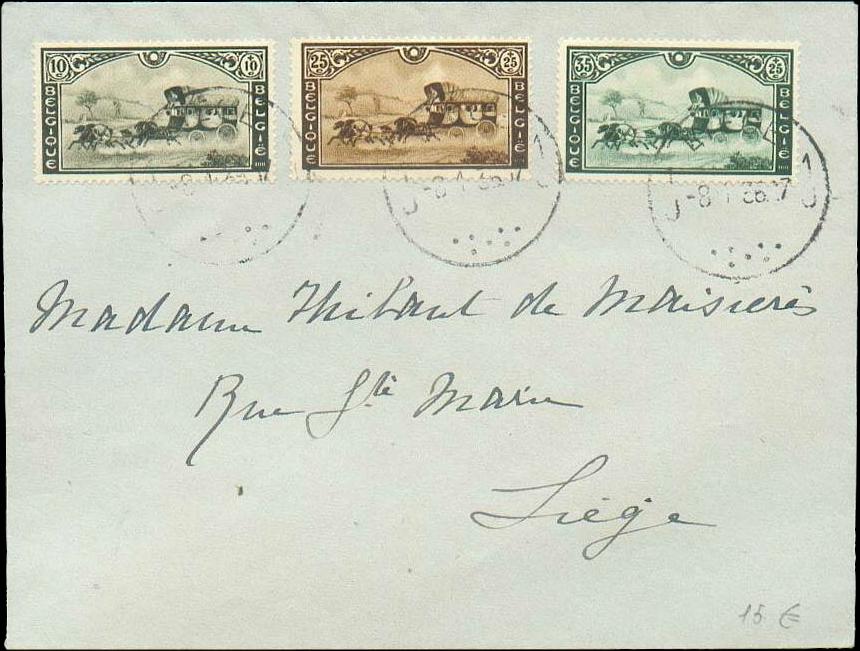 10 + 10
BELGIQUE
BELGIË
25 + 25
BELGIQUE
BELGIË
35 + 25
BELGIQUE
BELGIË
-8 1 36
-8 1 36
-8 1 36 17
Madame Thibaut de Maisières
Rue Ste Marie
Liège
15 €